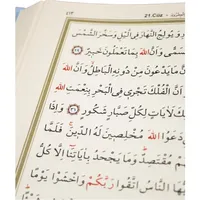 ٤١٣ 21.Cüz
وَيُولِجُ النَّهَارَ فِي الَّيْلِ وَسَخَّرَ الشَّمْسَ
سَمًّى وَاَنَّ اللّٰهَ بِمَا تَعْمَلُونَ خَبِيرٌ ﴿٢٩﴾
مَا يَدْعُونَ مِنْ دُونِهِ الْبَاطِلُ وَاَنَّ اللّٰهَ
الْفُلْكَ تَجْرِي فِي الْبَحْرِ بِنِعْمَتِ اللّٰهِ
لَاٰيَاتٍ لِكُلِّ صَبَّارٍ شَكُورٍ ﴿٣١﴾ وَاِذَا
دَعَوُا اللّٰهَ مُخْلِصِينَ لَهُ الدِّينَ فَلَمَّا
مُقْتَصِدٌ وَمَا يَجْحَدُ بِاٰيَاتِنَا اِلَّا كُلُّ
يُّهَا النَّاسُ اتَّقُوا رَبَّكُمْ وَاخْشَوْا يَوْمًا